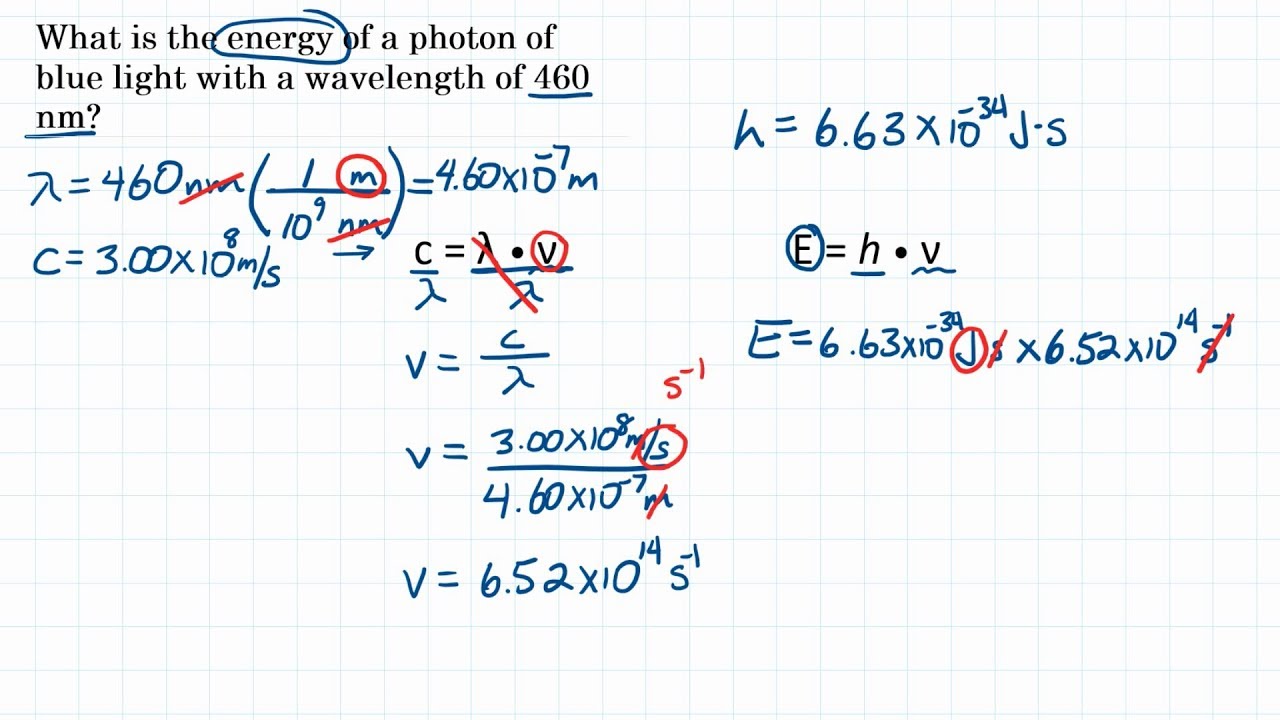 What is the energy of a photon of
blue light with a wavelength of 460
nm?
λ = 460 nm (1 m / 10⁹ nm) = 4.60×10⁻⁷ m
c = 3.00×10⁸ m/s →
c = λ • ν
λ λ
ν = c / λ
s⁻¹
ν = 3.00×10⁸ m/s / 4.60×10⁻⁷ m
ν = 6.52×10¹⁴ s⁻¹
h = 6.63×10⁻³⁴ J·s
E = h • ν
E = 6.63×10⁻³⁴ J s × 6.52×10¹⁴ s⁻¹